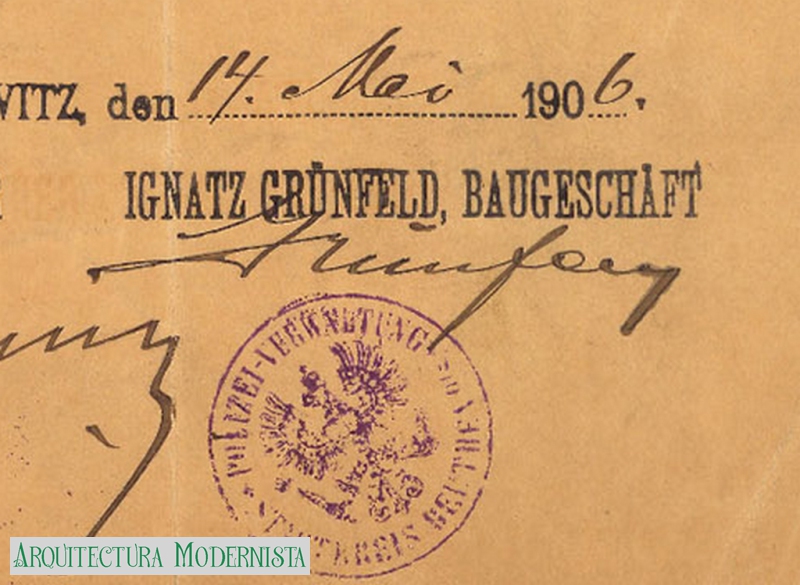 WITZ, den 14. Mai 1906.
IGNATZ GRÜNFELD, BAUGESCHÄFT
Grünfeld
POLIZEI-VERWALTUNG
STADTKREIS BEUTHEN O/S
ARQUITECTURA MODERNISTA